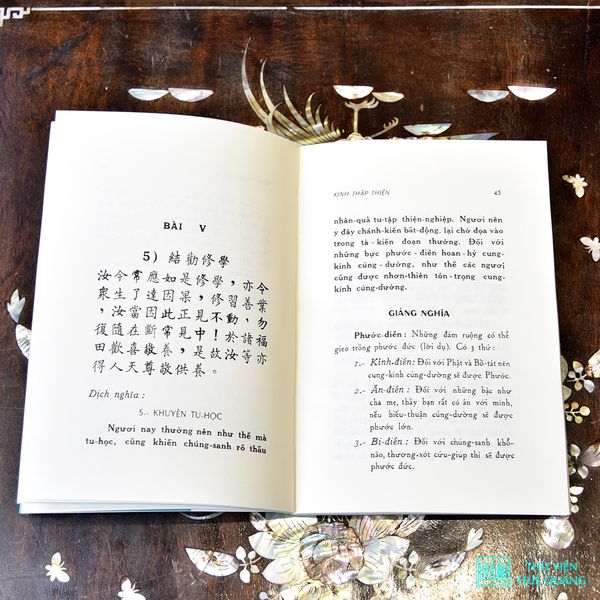 BÀI V
5) 結勸修學
汝今常應如是修學，亦令
衆生了達因果，修習善業
，汝當因此正見不動，勿
復隨在斷常見中！於諸福
田歡喜敬養，是故汝等亦
得人天尊敬供養。
Dịch nghĩa :
5.- KHUYÊN TU-HỌC
Ngươi nay thường nên như thế mà
tu-học, cũng khiến chúng-sanh rõ thấu
KINH THẬP THIỆN 45
nhân-quả tu-tập thiện-nghiệp. Ngươi nên
y đây chánh-kiến bất-động, lại chớ đọa vào
trong tà-kiến đoạn thường. Đối với
những bực phước-điền hoan-hỷ cung-
kính cúng-dường, như thế các ngươi
cũng được nhơn-thiên tôn-trọng cung-
kính cúng-dường.
GIẢNG NGHĨA
Phước-điền : Những đám ruộng có thể
gieo trồng phước đức (lời dụ). Có 3 thứ :
1.- Kính-điền: Đối với Phật và Bồ-tát nên
cung-kính cúng-dường sẽ được Phước.
2.- Ân-điền : Đối với những bậc như
cha mẹ, thầy bạn rất có ân với mình,
nếu hiếu-thuận cúng-dường sẽ được
phước lớn.
3.- Bi-điền : Đối với chúng-sanh khổ-
não, thương-xót cứu-giúp thì sẽ được
phước đức.
THƯ VIỆN
HUỆ QUANG